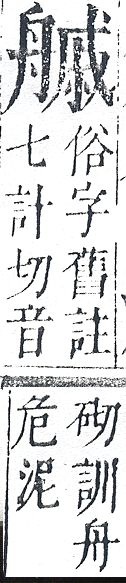 俗字舊註
七計切音
砌訓舟
危泥